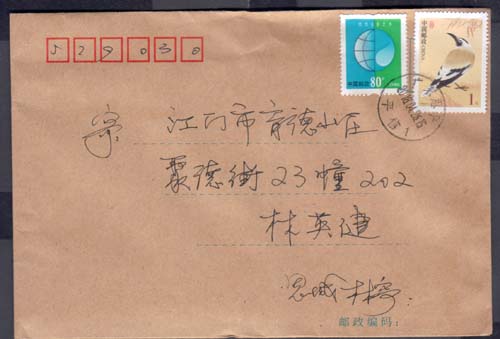 529030
中国邮政 80分
中国邮政
1元
寄 江门市育德小庄
聚德街23幢202
林英建
恩城
邮政编码: